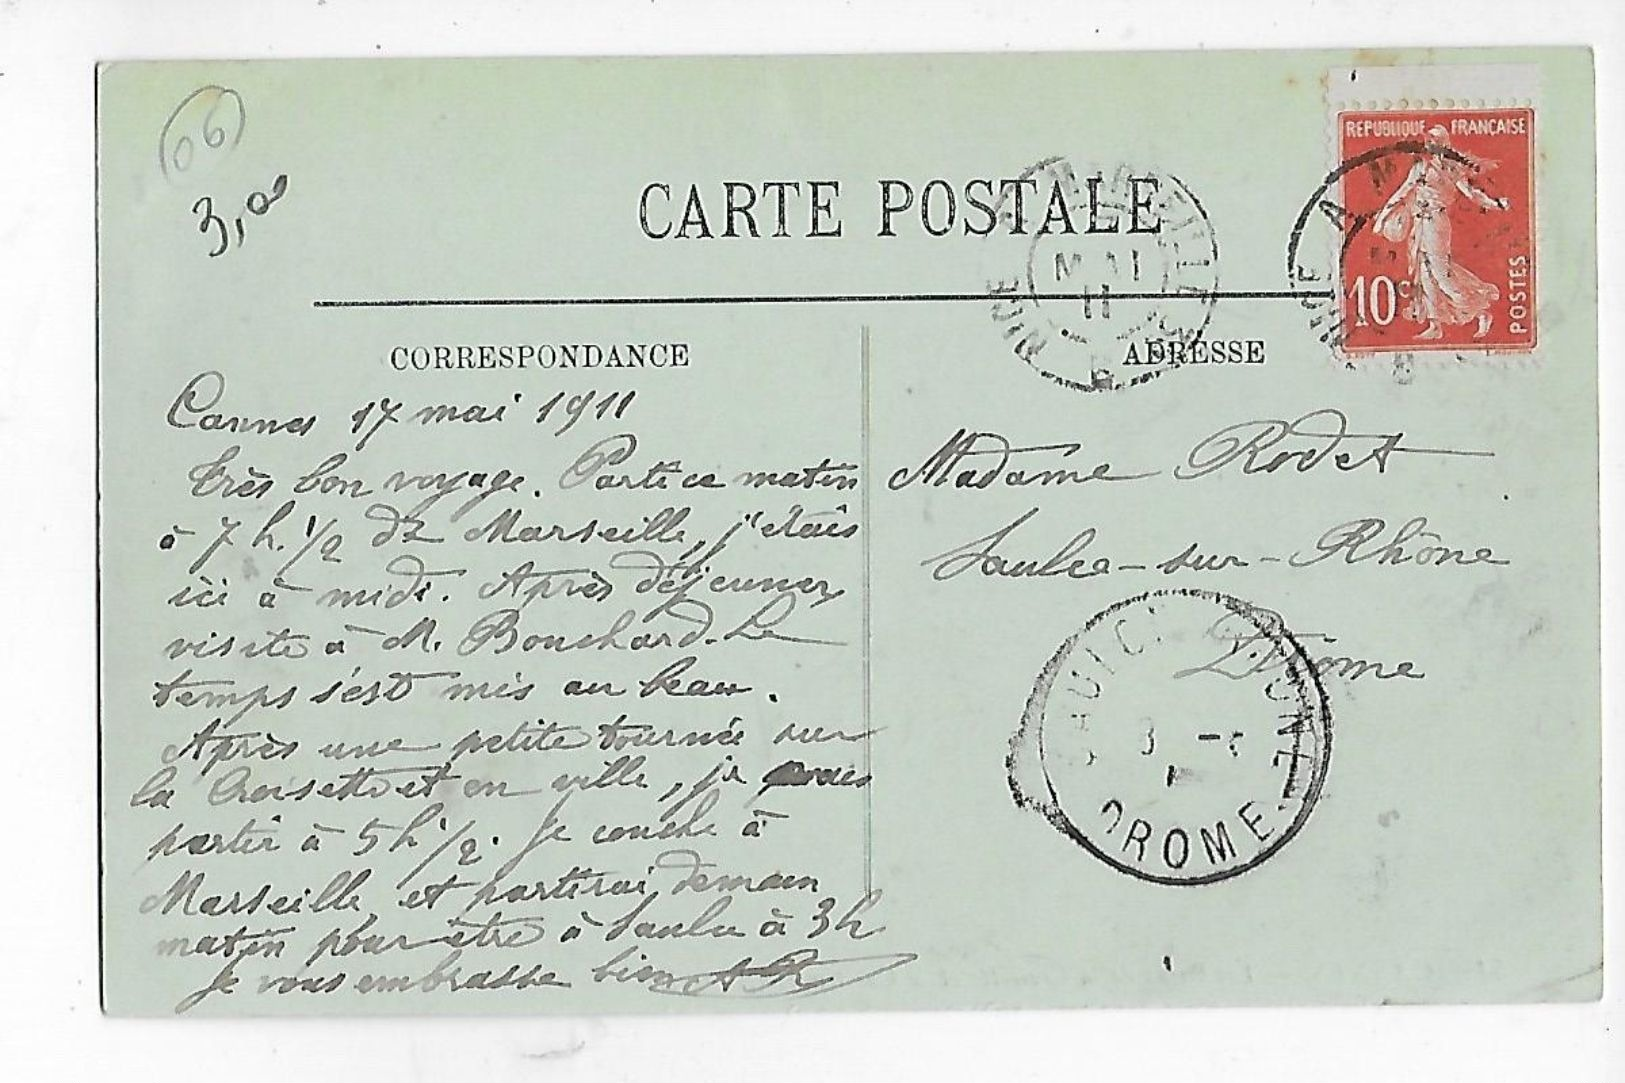 06
3,00
CARTE POSTALE
REPUBLIQUE FRANÇAISE
10c
POSTES
MAI
11
NICE
A MARSEILLE
NICE
CORRESPONDANCE
ADRESSE
Cannes 17 mai 1911
Très bon voyage. Parti ce matin
à 7 h. 1/2 de Marseille, j'étais
ici à midi. Après déjeuner
visite à M. Bouchard. Le
temps s'est mis au beau.
Après une petite tournée sur
la Croisette et en ville, je vais
partir à 5 h 1/2. Je couche à
Marseille, et partirai demain
matin pour être à Saulce à 3h
Je vous embrasse bien AR
Madame Rodet
Saulce-sur-Rhône
Drôme
DROME